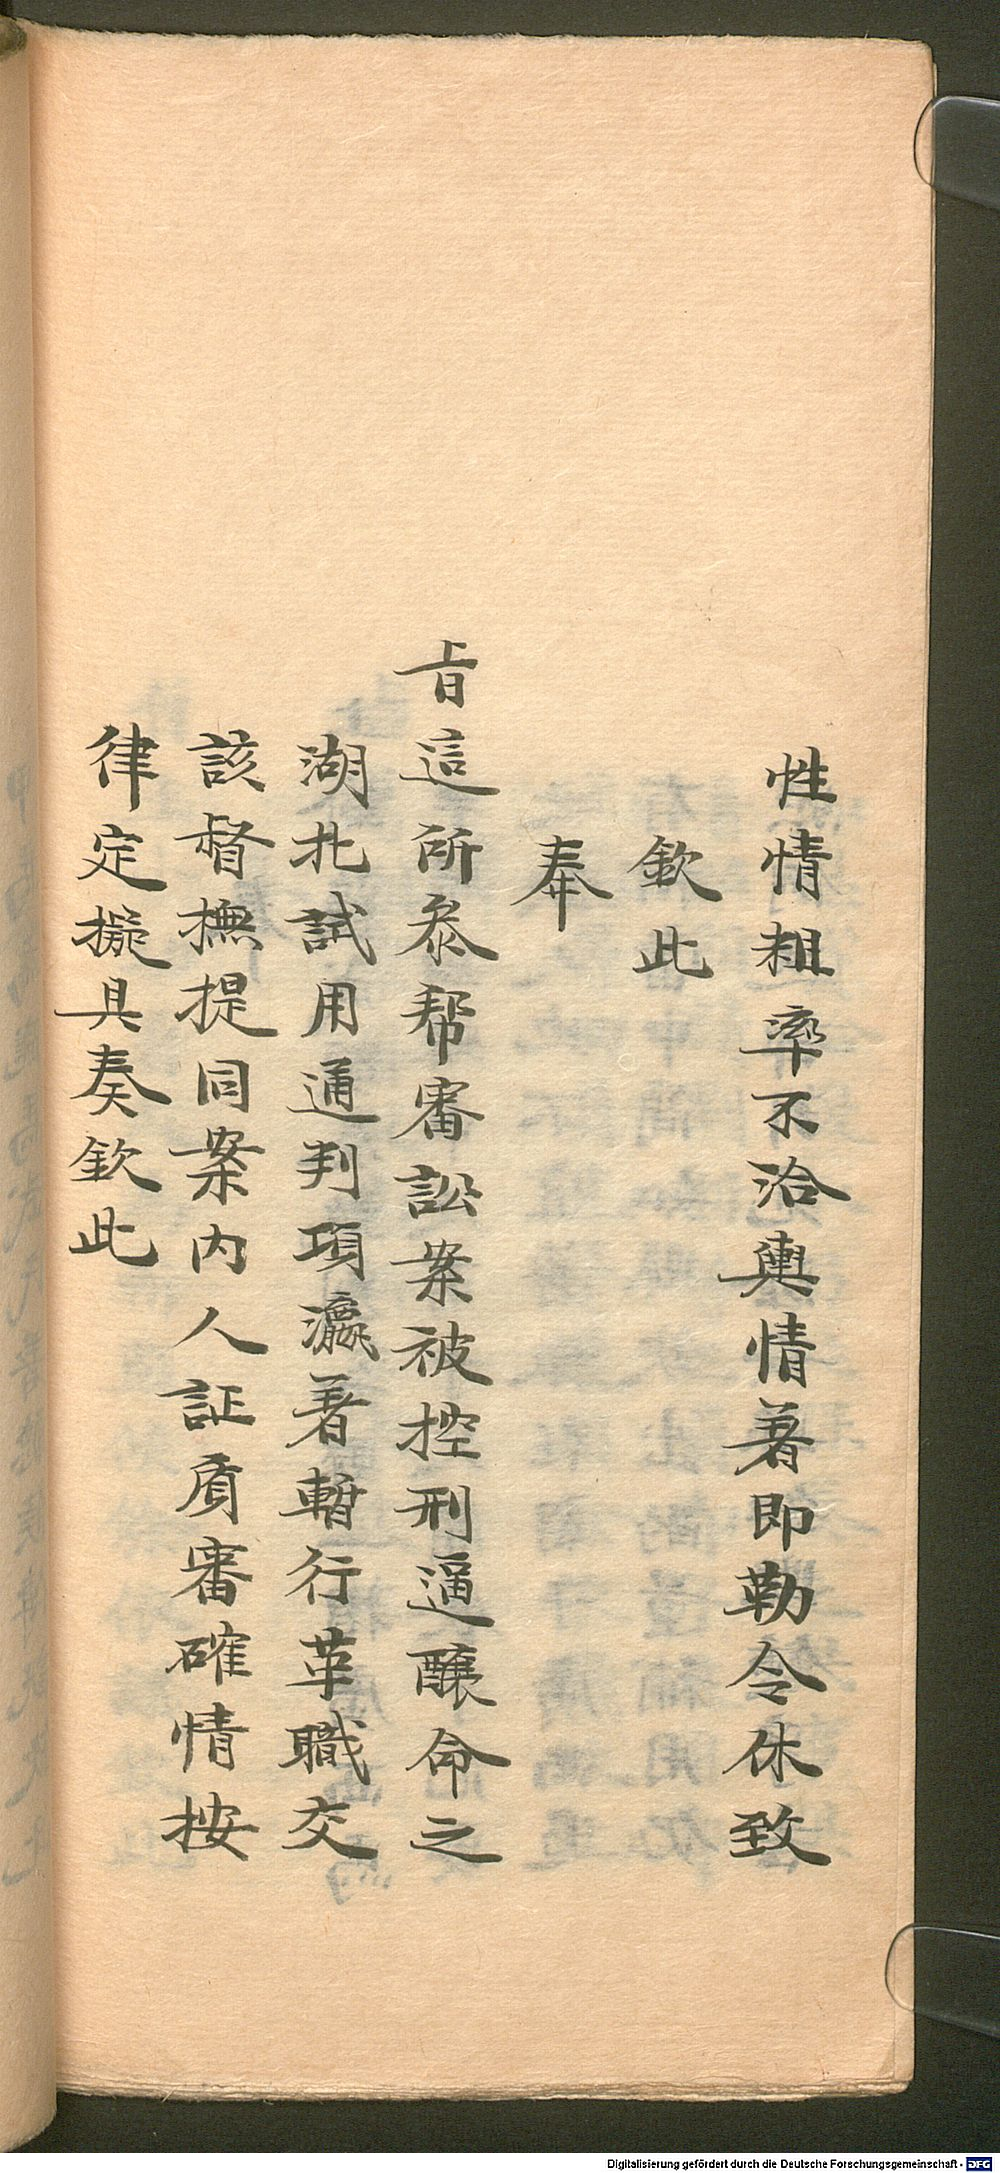 性情粗率不洽輿情着即勒令休致
欽此
奉
旨這所叅帮審訟案被控刑逼釀命之
湖北試用通判項瀛着暫行革職交
該督撫提同案內人証質審確情按
律定擬具奏欽此
Digitalisierung gefördert durch die Deutsche Forschungsgemeinschaft - DFG